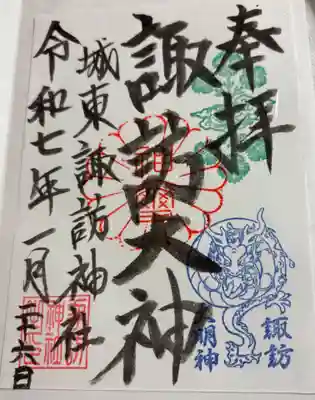 奉拝
諏訪大神
城東諏訪神社
令和七年一月二十六日
諏訪
明神